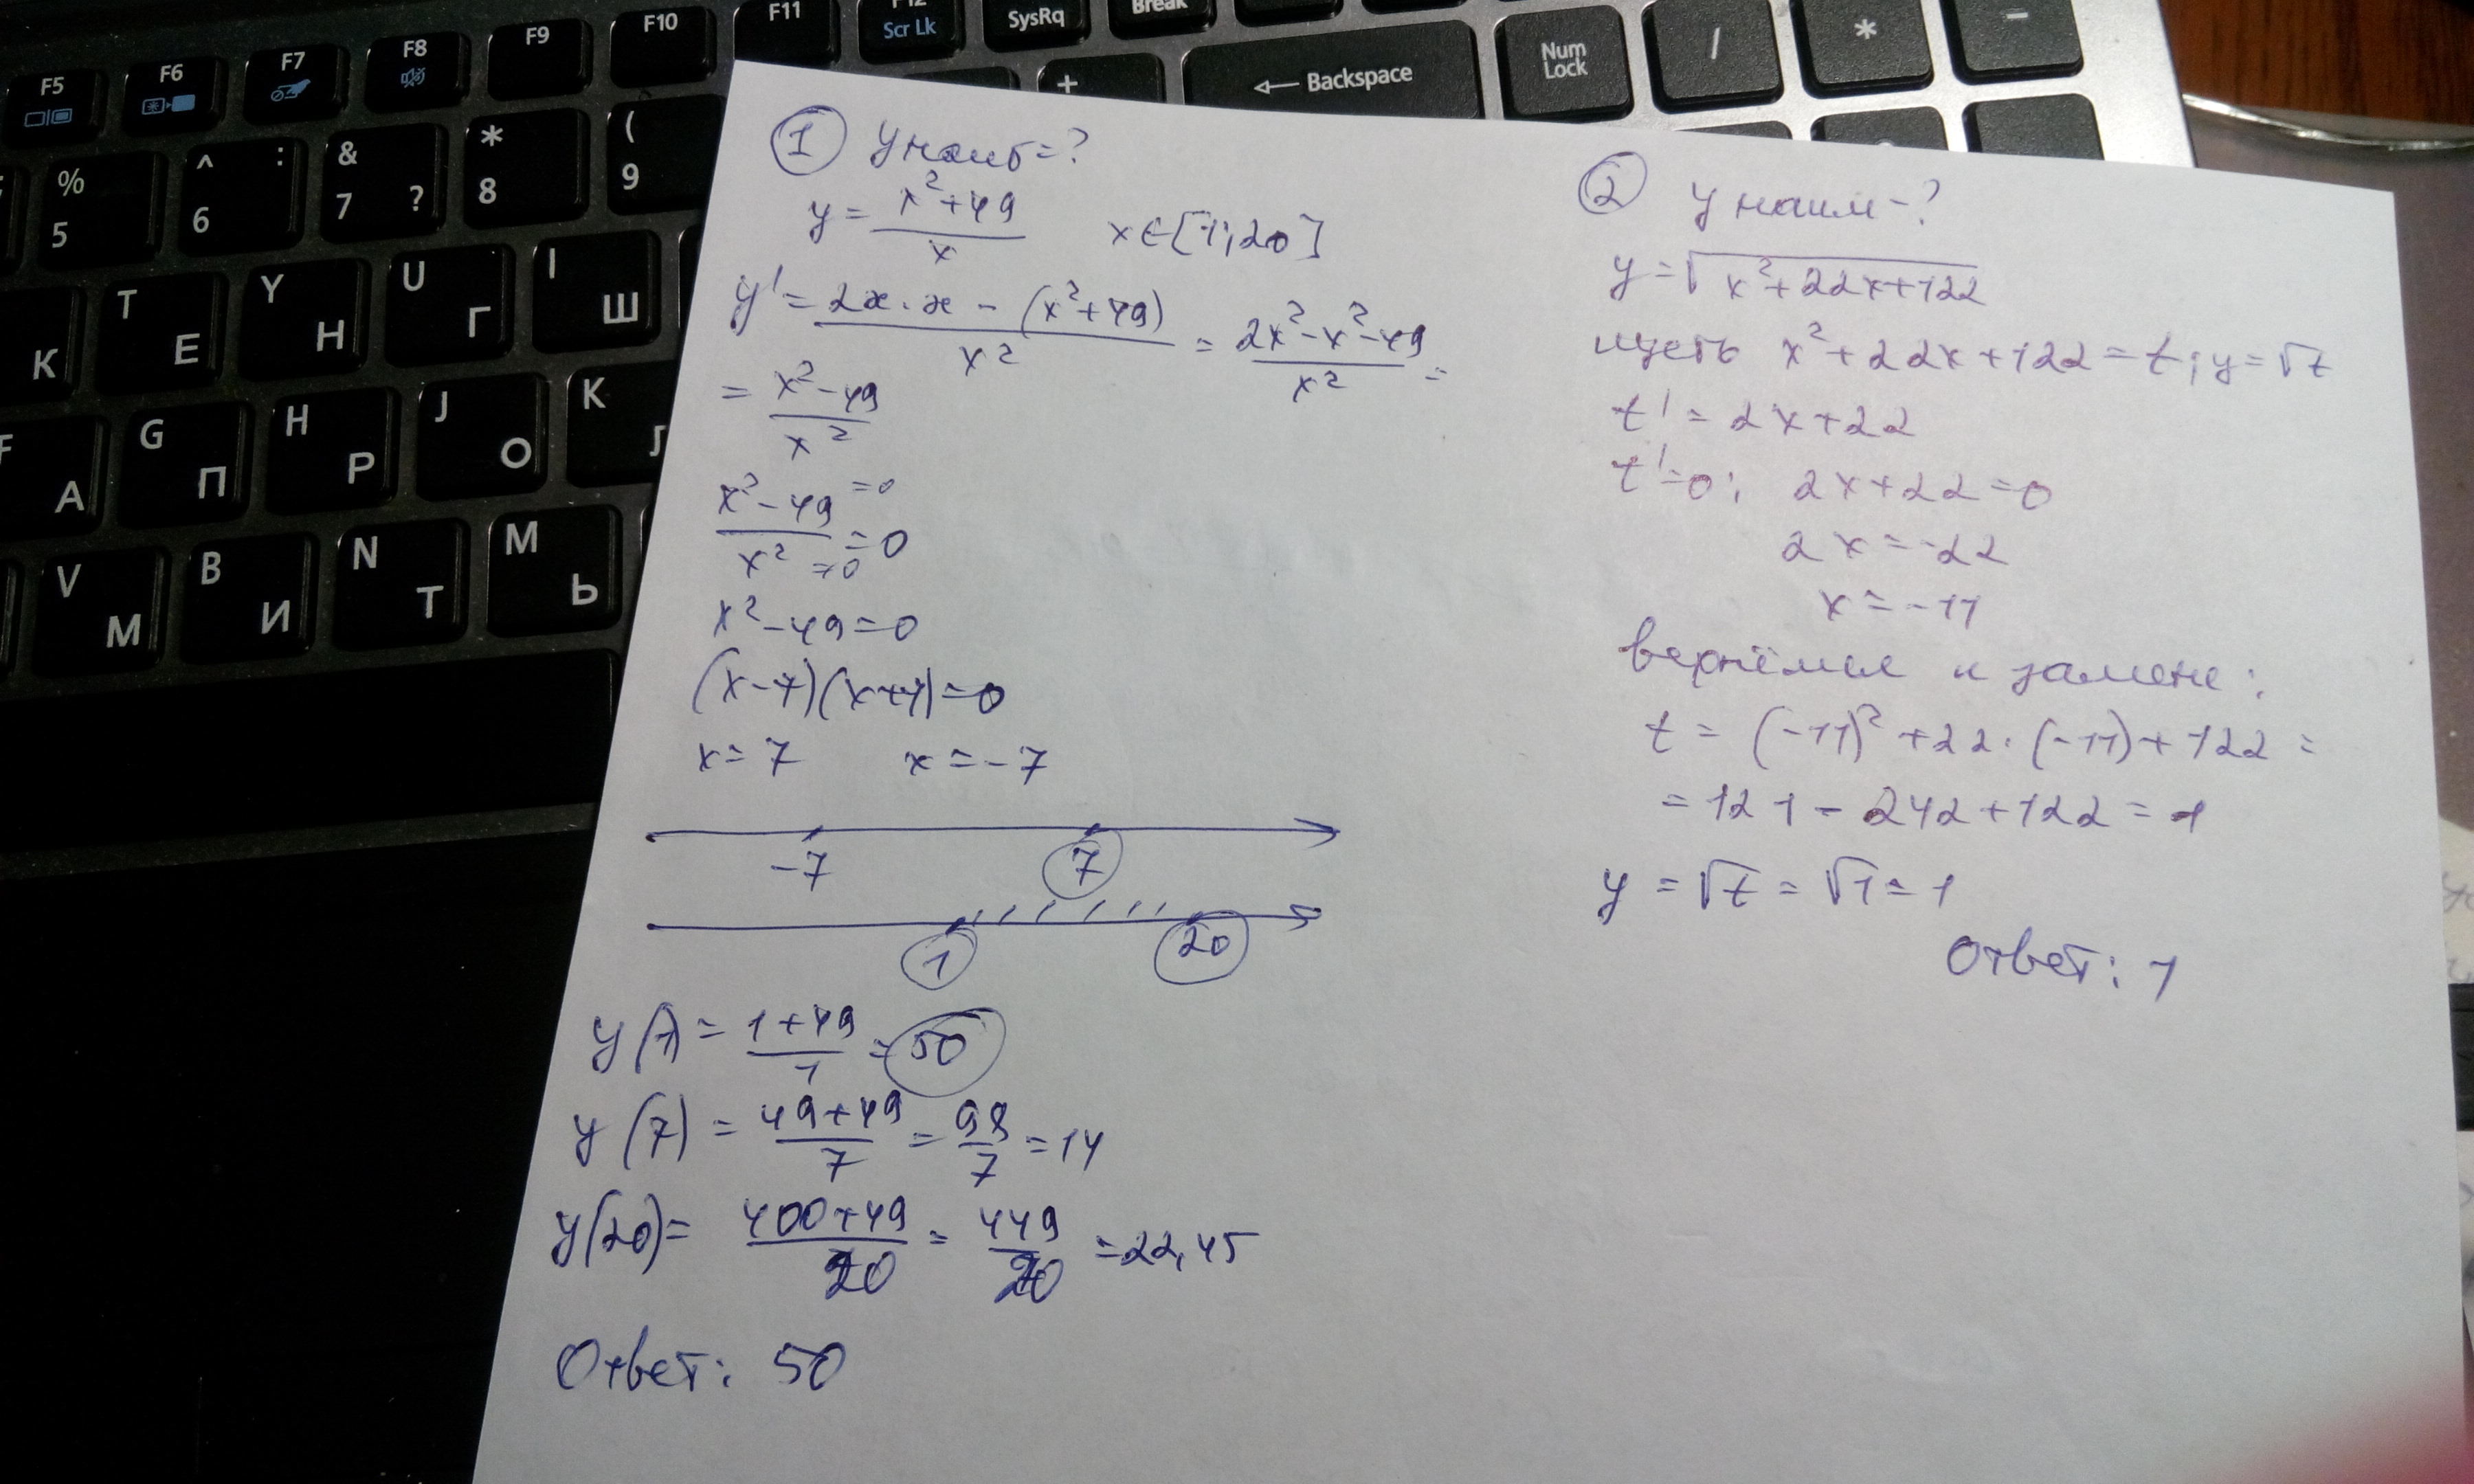 F5 F6 F7 F8 F9 F10 F11 F12 Scr Lk SysRq Break
% 5 ^ : 6 & 7 ? * 8 ( 9 + ← Backspace Num Lock / * -
К T Е Y Н U Г I Ш
F А G П H Р J О K Л
V М B И N Т M Ь
① y наиб=?
y = (x²+49)/x x∈[1;20]
y' = (2x·x - (x²+49))/x² = (2x²-x²-49)/x² =
= (x²-49)/x²
(x²-49 =0)/(x² ≠0) = 0
x²-49=0
(x-7)(x+7)=0
x=7 x=-7
-7 7
1 20
y(1) = (1+49)/1 = 50
y(7) = (49+49)/7 = 98/7 = 14
y(20) = (400+49)/20 = 449/20 = 22,45
Ответ: 50
② y наим-?
y = √(x²+22x+122)
пусть x²+22x+122=t; y=√t
t' = 2x+22
t'=0; 2x+22=0
2x=-22
x=-11
вернёмся к замене:
t = (-11)²+22·(-11)+122=
= 121-242+122=1
y = √t = √1 = 1
Ответ: 1